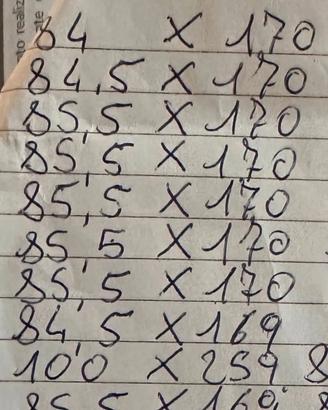 to realiz
ate
64 X 170
84,5 X 170
85,5 X 170
85,5 X 170
85,5 X 170
85,5 X 170
85,5 X 170
84,5 X 169
100 X 259 8
85,5 X 169